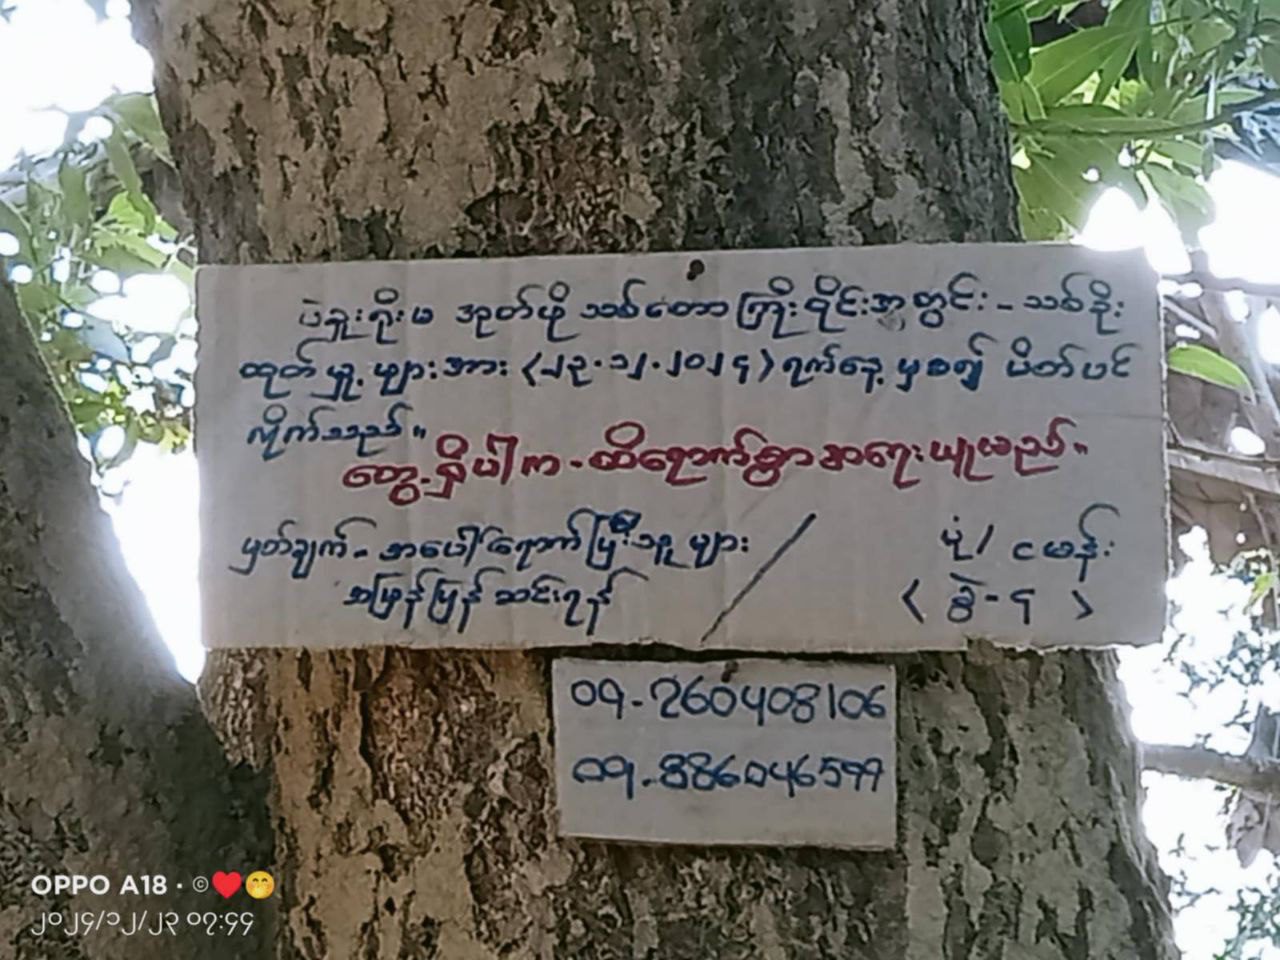 ပဲခူးရိုးမ အုတ်ဖို သစ်တောကြိုးဝိုင်းအတွင်း - သစ်ခိုး
ထုတ်မှု့များအား (၂၃.၁၂.၂၀၂၄) ရက်နေ့မှစ၍ ပိတ်ပင်
လိုက်သည်။
တွေ့ရှိပါက - ထိရောက်စွာအရေးယူမည်။
မှတ်ချက် - အပေါ်ရောက်ပြီးသူများ
အမြန်ပြန်ဆင်းရန်
ပုံ / ငမန်း
( ခွဲ - ၄ )
09-260408106
09-886046599
OPPO A18 · ©❤️🤭
၂၀၂၄/၁၂/၂၃ ၀၇:၄၄